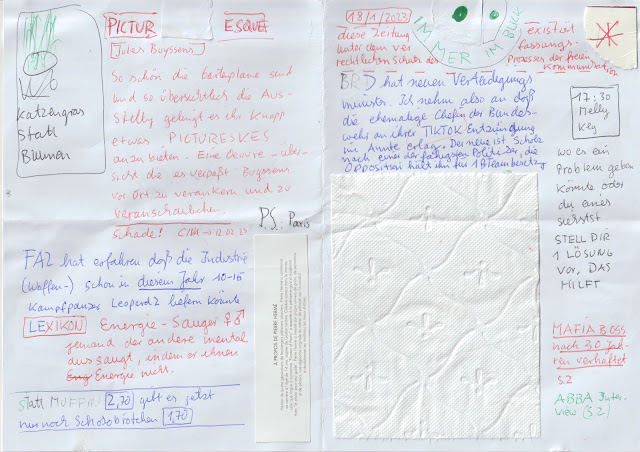 WO
Katzengras
Statt
Blumen
PICTUR ESQUE
Jules Buyssens
So schön die Beilapläne sind
und so übersichtlich die Aus-
Stellg gelingt es ihr knapp
etwas PICTURESKES
anzubieten. Eine Oeuvre-über-
sicht die es verpaßt Buyssens
vor Ort zu verankern und zu
veranschaulichen.
Schade!
P.S. Paris
FAZ hat erfahren daß die Industrie
(Waffen-) schon in diesem Jahr 10-15
Kampfpanzer Leopard2 liefern könnte
LEXIKON Energie-Sauger ♀♂
jemand der andere mental
aussaugt, indem er ihnen
Energie
Statt MUFFIN 2,70 gibt es jetzt
nur noch Schokobrötchen 1,70
À PROPOS DE PIERRE HERMÉ
18/1/2023
diese Zeitung existiert
unter dem ver fassungs-
rechtlichen Schutz des Prozesses der freien
Kommunikation
IMMER IM BLICK
BRD hat neuen Verteidigungs
minister. Ich nehm also an daß
die ehemalige Chefin der Bundes-
wehr an ihrer TIKTOK Entzündung
im Amte erlag. Der neue ist Scholz
nach einer der fähigsten Politiker, die
Opposition hält ihn für 1 B Teambesetzg
17:30
Melly
Key
wo es ein
Problem geben
könnte oder
du eines
siehst
STELL DIR
1 LÖSUNG
VOR, DAS
HILFT
MAFIABOSS
nach 30 Jah-
ren verhaftet
S.2
ABBA Inter-
view (S.2)